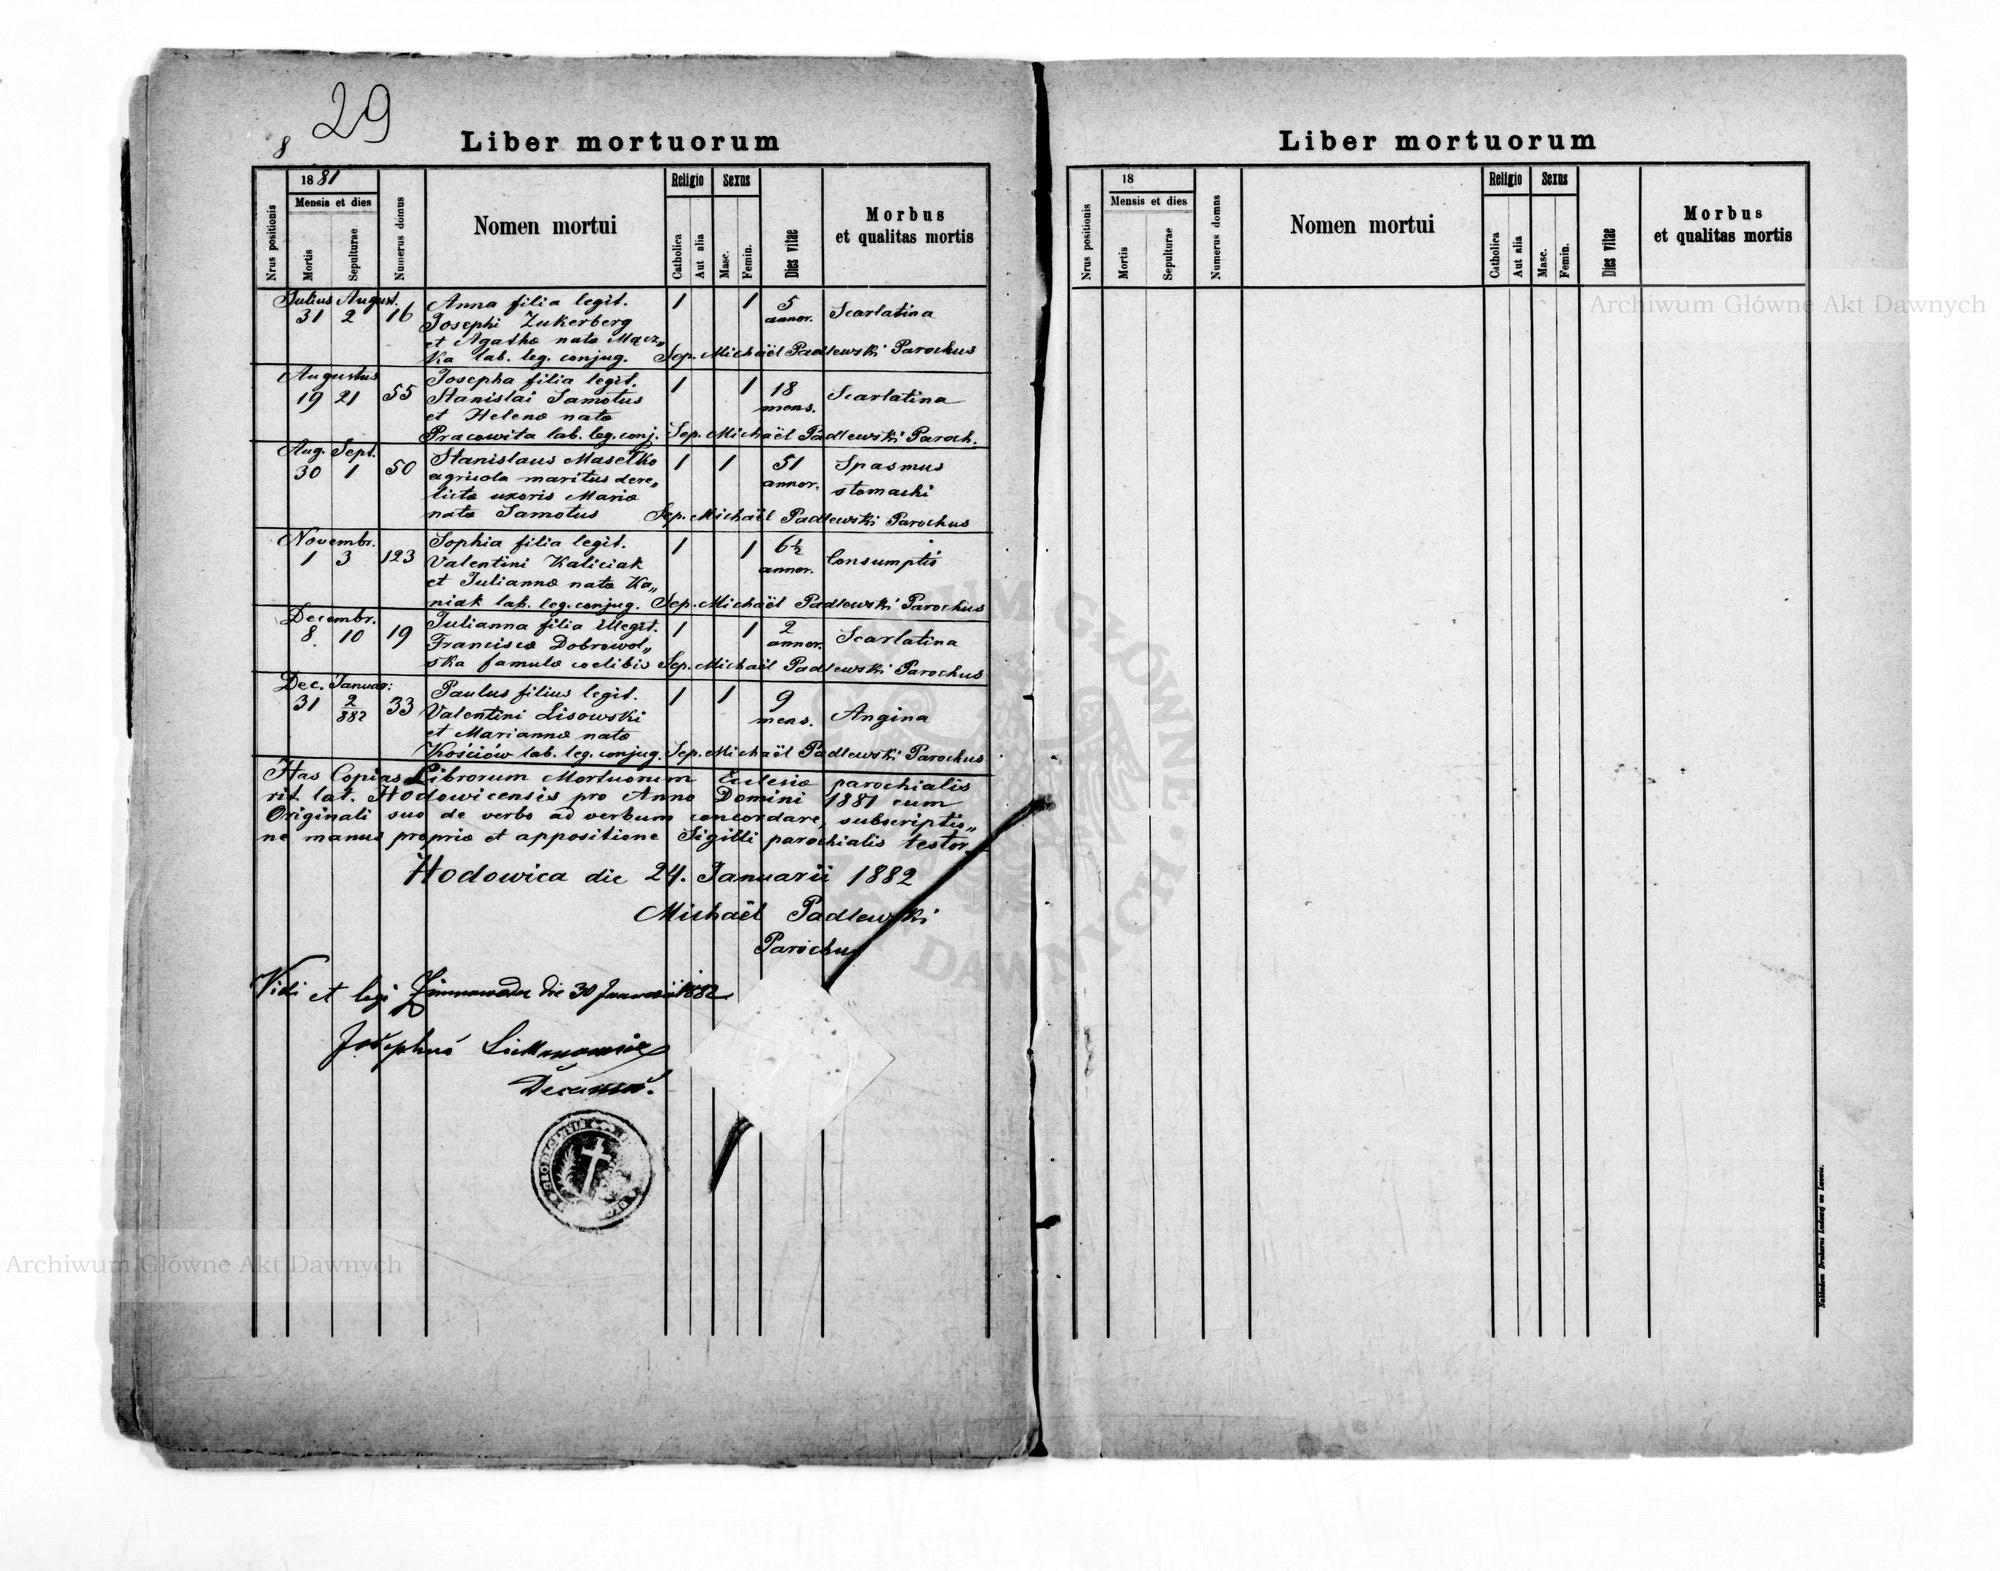 29
8
Liber mortuorum
Nrus positionis
1881
Mensis et dies
Mortis
Sepulturae
Numerus domus
Nomen mortui
Religio
Catholica
Aut alia
Sexus
Masc.
Femin.
Dies vitae
Morbus
et qualitas mortis
Julius August.
31 2 16 Anna filia legit. 1 1 5 annor. Scarlatina
Josephi Zukerberg
et Agatha nata Mącz„
ka lab. leg. conjug. Sep. Michaël Padlewski Parochus
Augustus
19 21 55 Josepha filia legit. 1 1 18 mens. Scarlatina
Stanislai Samotus
et Helena nata
Pracowita lab. leg. conj. Sep. Michaël Padlewski Paroch.
Aug. Sept.
30 1 50 Stanislaus Masełko 1 1 51 annor. Spasmus
agricola maritus dere„ stomachi
licta uxoris Maria
nata Samotus Sep. Michaël Padlewski Parochus
Novembr.
1 3 123 Sophia filia legit. 1 1 6½ annor. Consumptio
Valentini Kaliciak
et Julianna nata Ka„
niak lab. leg. conjug. Sep. Michaël Padlewski Parochus
Decembr.
8 10 19 Julianna filia illegit. 1 1 2 annor. Scarlatina
Francisca Dobrowol„
ska famula coelibis Sep. Michaël Padlewski Parochus
Dec. Januar:
31 2/882 33 Paulus filius legit. 1 1 9 mens. Angina
Valentini Lisowski
et Marianna nata
Kościów lab. leg. conjug. Sep. Michaël Padlewski Parochus
Has Copias Librorum Mortuorum Eclesia parochialis
rit. lat. Hodowicensis pro Anno Domini 1881 cum
Originali suo de verbo ad verbum concordare, subscriptio„
ne manus propria et appositione Sigilli parochialis testor.
Hodowica die 24. Januarii 1882
Michaël Padlewski
Parochus
Vidi et legi die 30 Januarii 1882
Josephus
Decanus.
Liber mortuorum
Nrus positionis
18
Mensis et dies
Mortis
Sepulturae
Numerus domus
Nomen mortui
Religio
Catholica
Aut alia
Sexus
Masc.
Femin.
Dies vitae
Morbus
et qualitas mortis
Archiwum Główne Akt Dawnych
Archiwum Główne Akt Dawnych